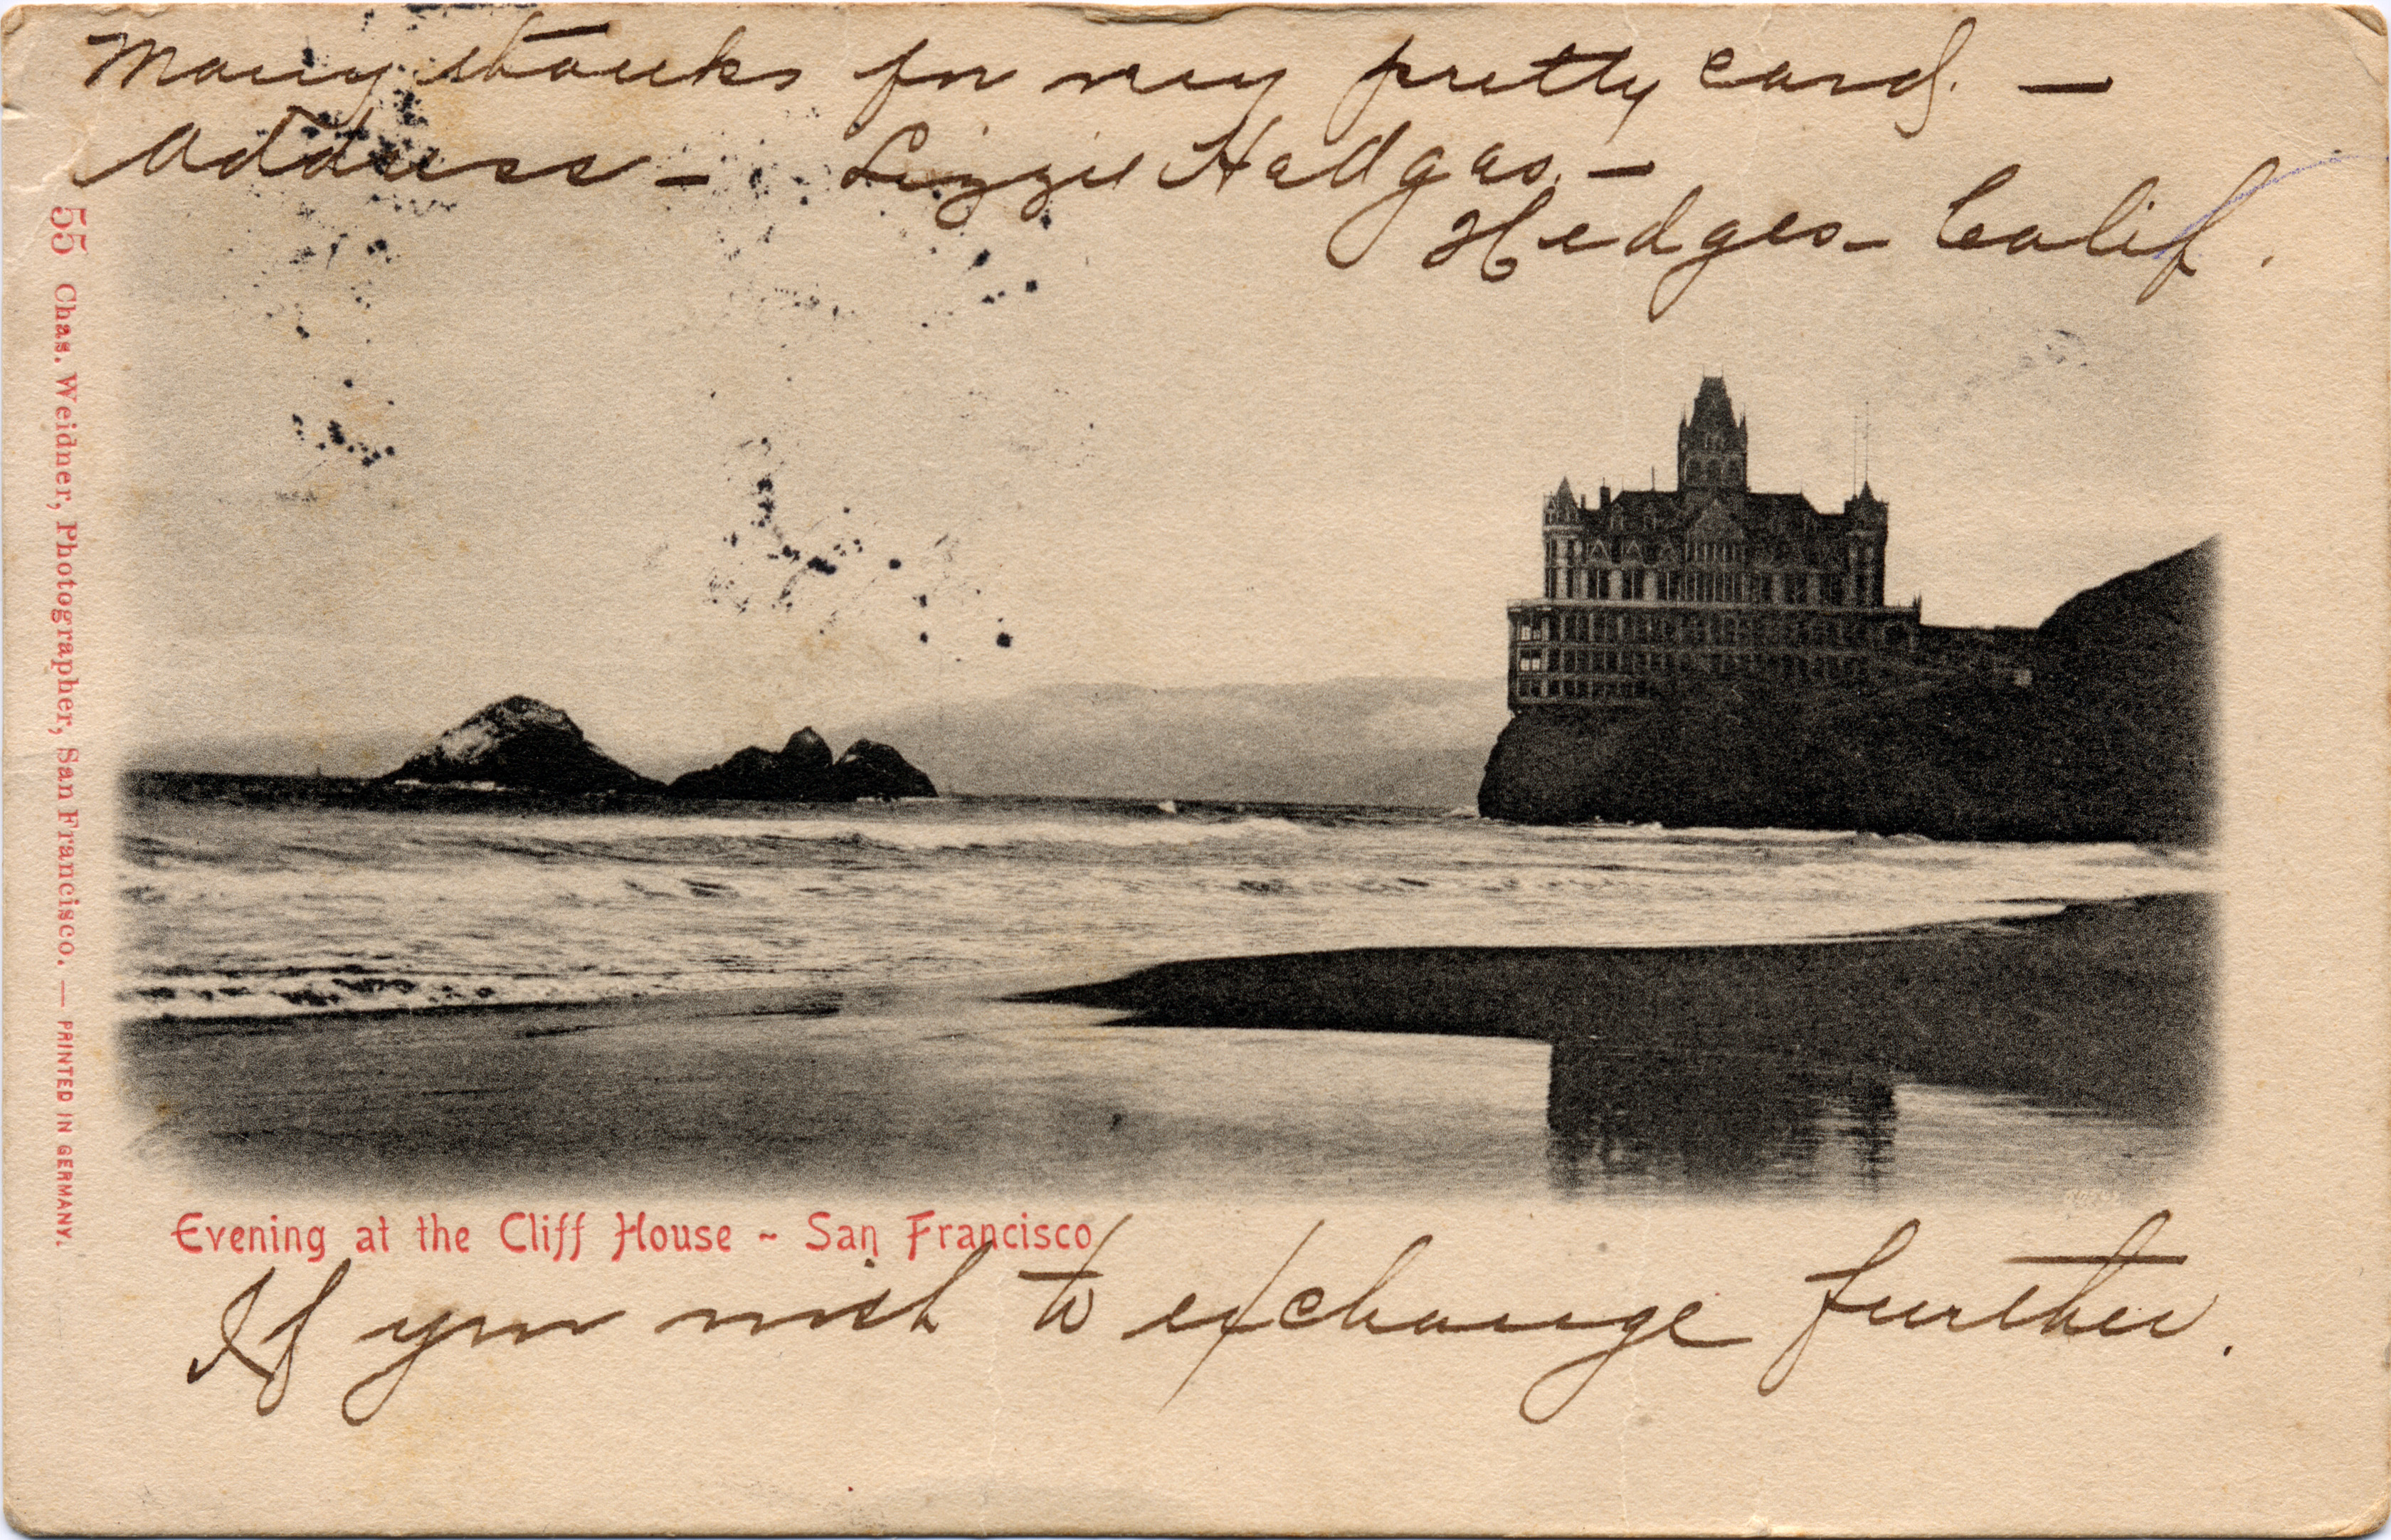 Many thanks for my pretty card. —
Address — Lizzie
Hedges — Calif.
55 Chas. Weidner, Photographer, San Francisco. — PRINTED IN GERMANY.
Evening at the Cliff House ~ San Francisco
If you wish to exchange further.